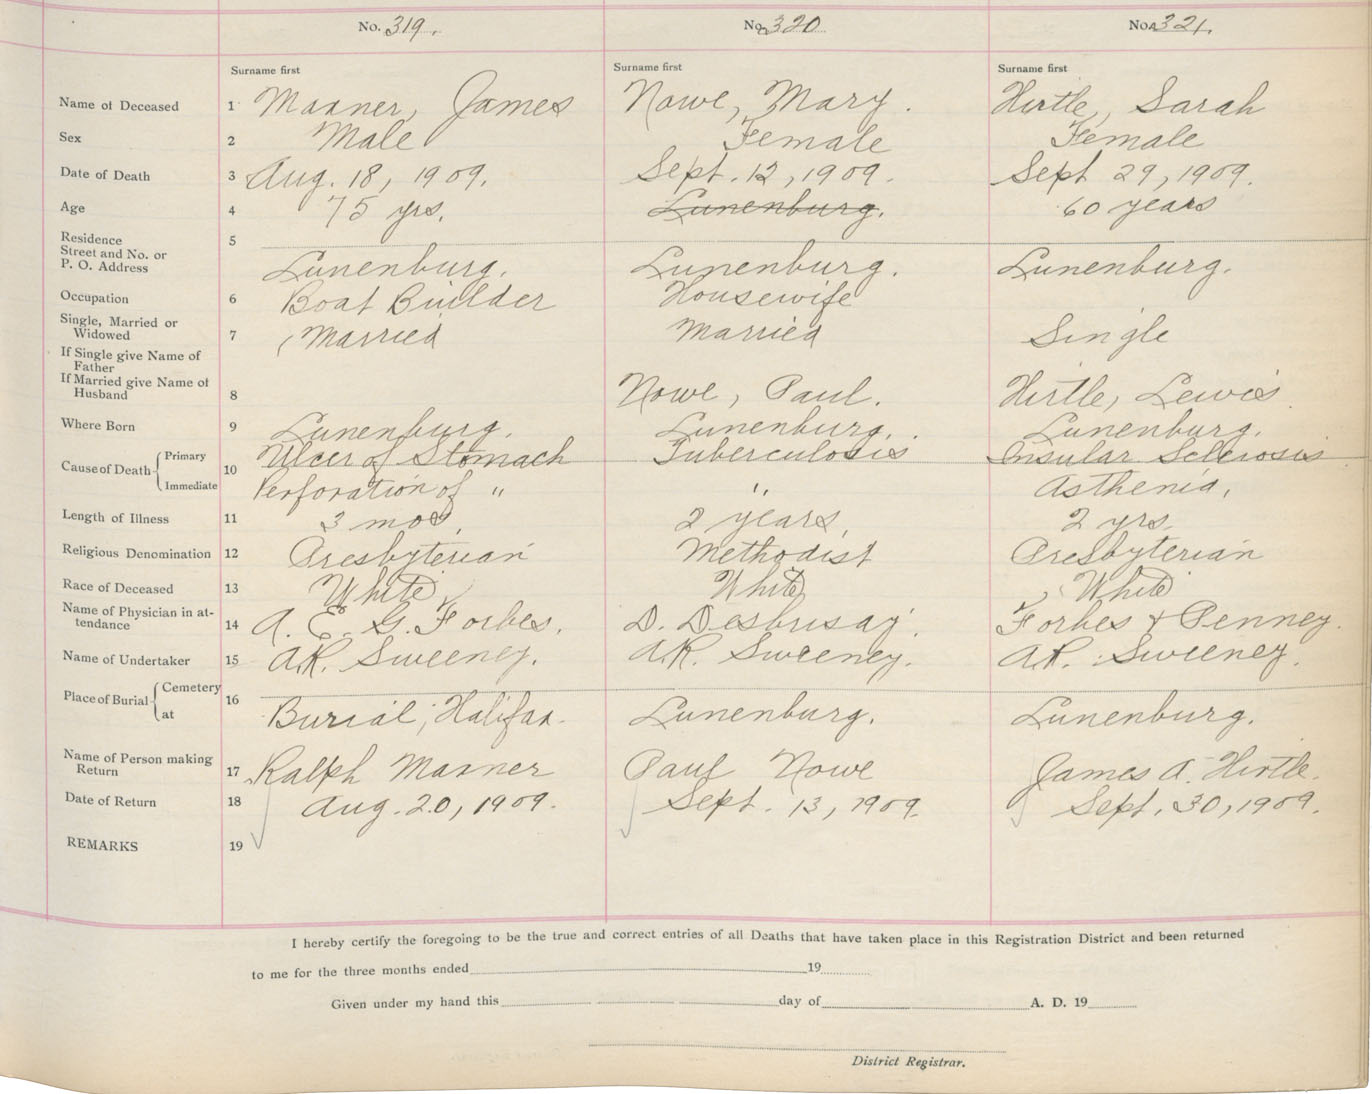 No. 319. No. 320 No. 321.
Surname first Surname first Surname first
Name of Deceased 1 Masner, James Nowe, Mary. Hirtle, Sarah
Sex 2 Male Female Female
Date of Death 3 Aug. 18, 1909. Sept. 12, 1909. Sept 29, 1909.
Age 4 75 yrs. Lunenburg. 60 years
Residence
Street and No. or
P. O. Address 5 Lunenburg. Lunenburg. Lunenburg.
Occupation 6 Boat Builder Housewife
Single, Married or
Widowed 7 Married Married Single
If Single give Name of
Father
If Married give Name of
Husband 8 Nowe, Paul. Hirtle, Lewis
Where Born 9 Lunenburg. Lunenburg. Lunenburg.
Cause of Death Primary 10 Ulcer of Stomach Tuberculosis Insular Sclerosis
Immediate Perforation of " " Asthenia,
Length of Illness 11 3 mos. 2 years, 2 yrs
Religious Denomination 12 Presbyterian Methodist Presbyterian
Race of Deceased 13 White White White
Name of Physician in at-
tendance 14 A. E. G. Forbes. D. Desbrisay. Forbes & Penney.
Name of Undertaker 15 A.R. Sweeney. A.R. Sweeney. A.R. Sweeney.
Place of Burial Cemetery 16
at Burial, Halifax. Lunenburg. Lunenburg.
Name of Person making
Return 17 Ralph Masner Paul Nowe James A. Hirtle.
Date of Return 18 Aug. 20, 1909. Sept. 13, 1909. Sept. 30, 1909.
REMARKS 19
I hereby certify the foregoing to be the true and correct entries of all Deaths that have taken place in this Registration District and been returned
to me for the three months ended 19
Given under my hand this day of A. D. 19
District Registrar.